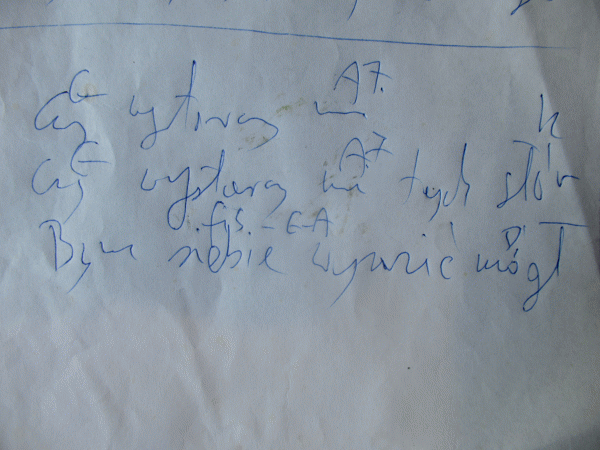 G A7
Czy wystarczy mi
G A7 h
Czy wystarczy mi tych słów
fis - G A D
Bym siebie wyrazić mógł